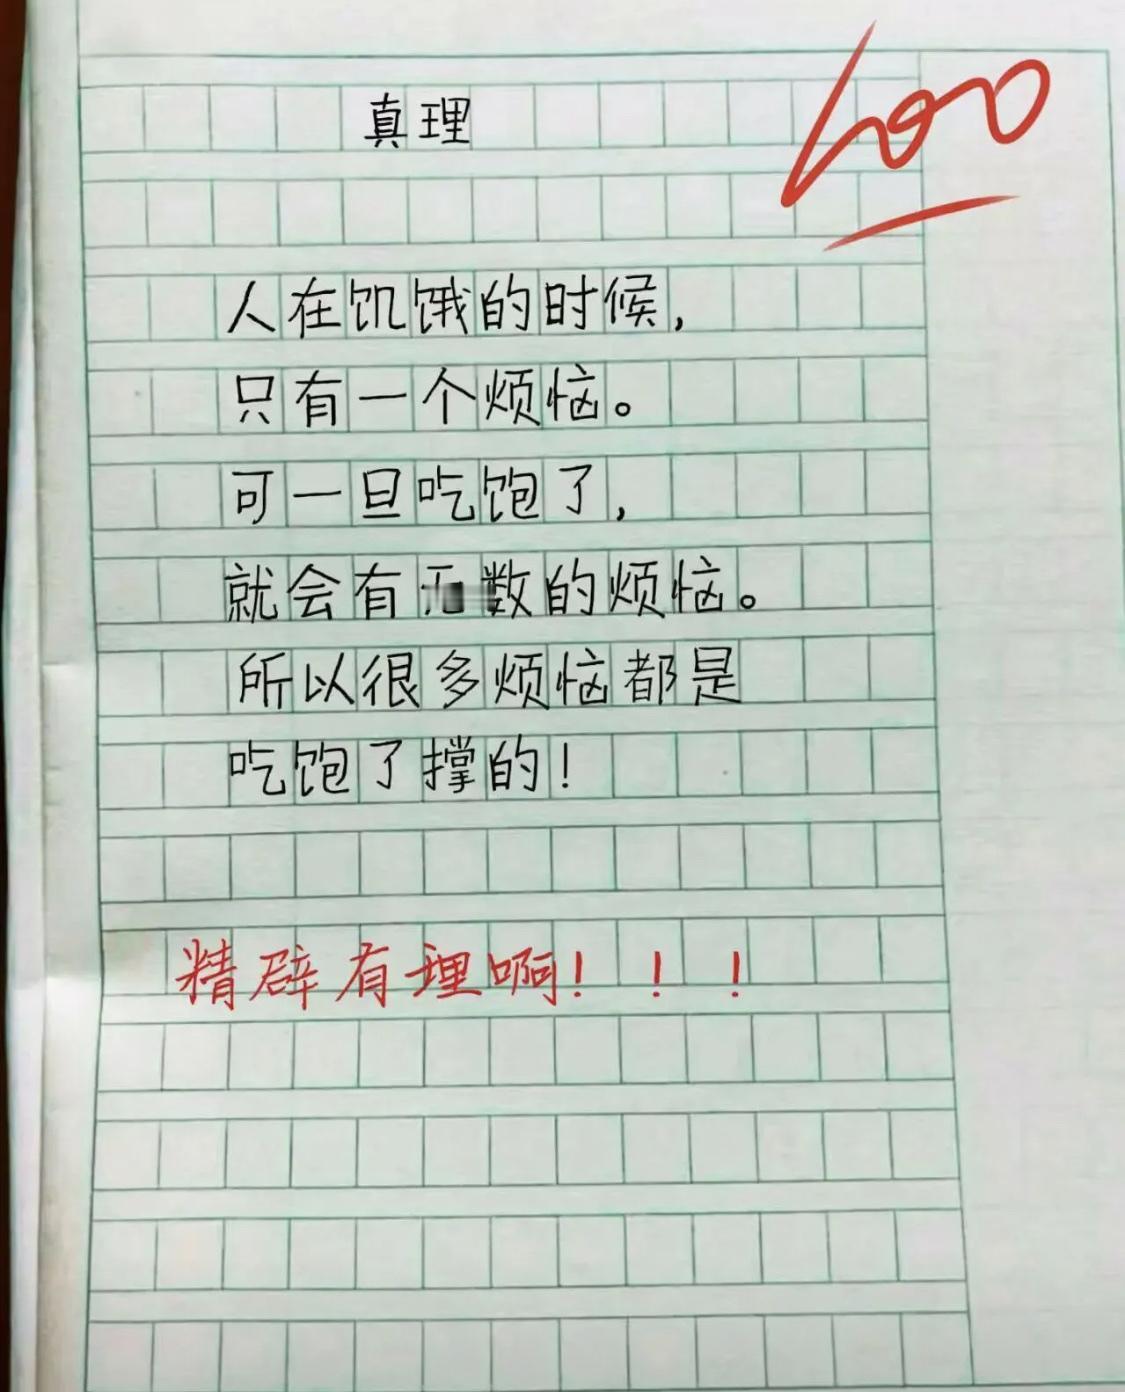 100
真理
人在饥饿的时候，
只有一个烦恼。
可一旦吃饱了，
就会有无数的烦恼。
所以很多烦恼都是
吃饱了撑的！
精辟有理啊！！！